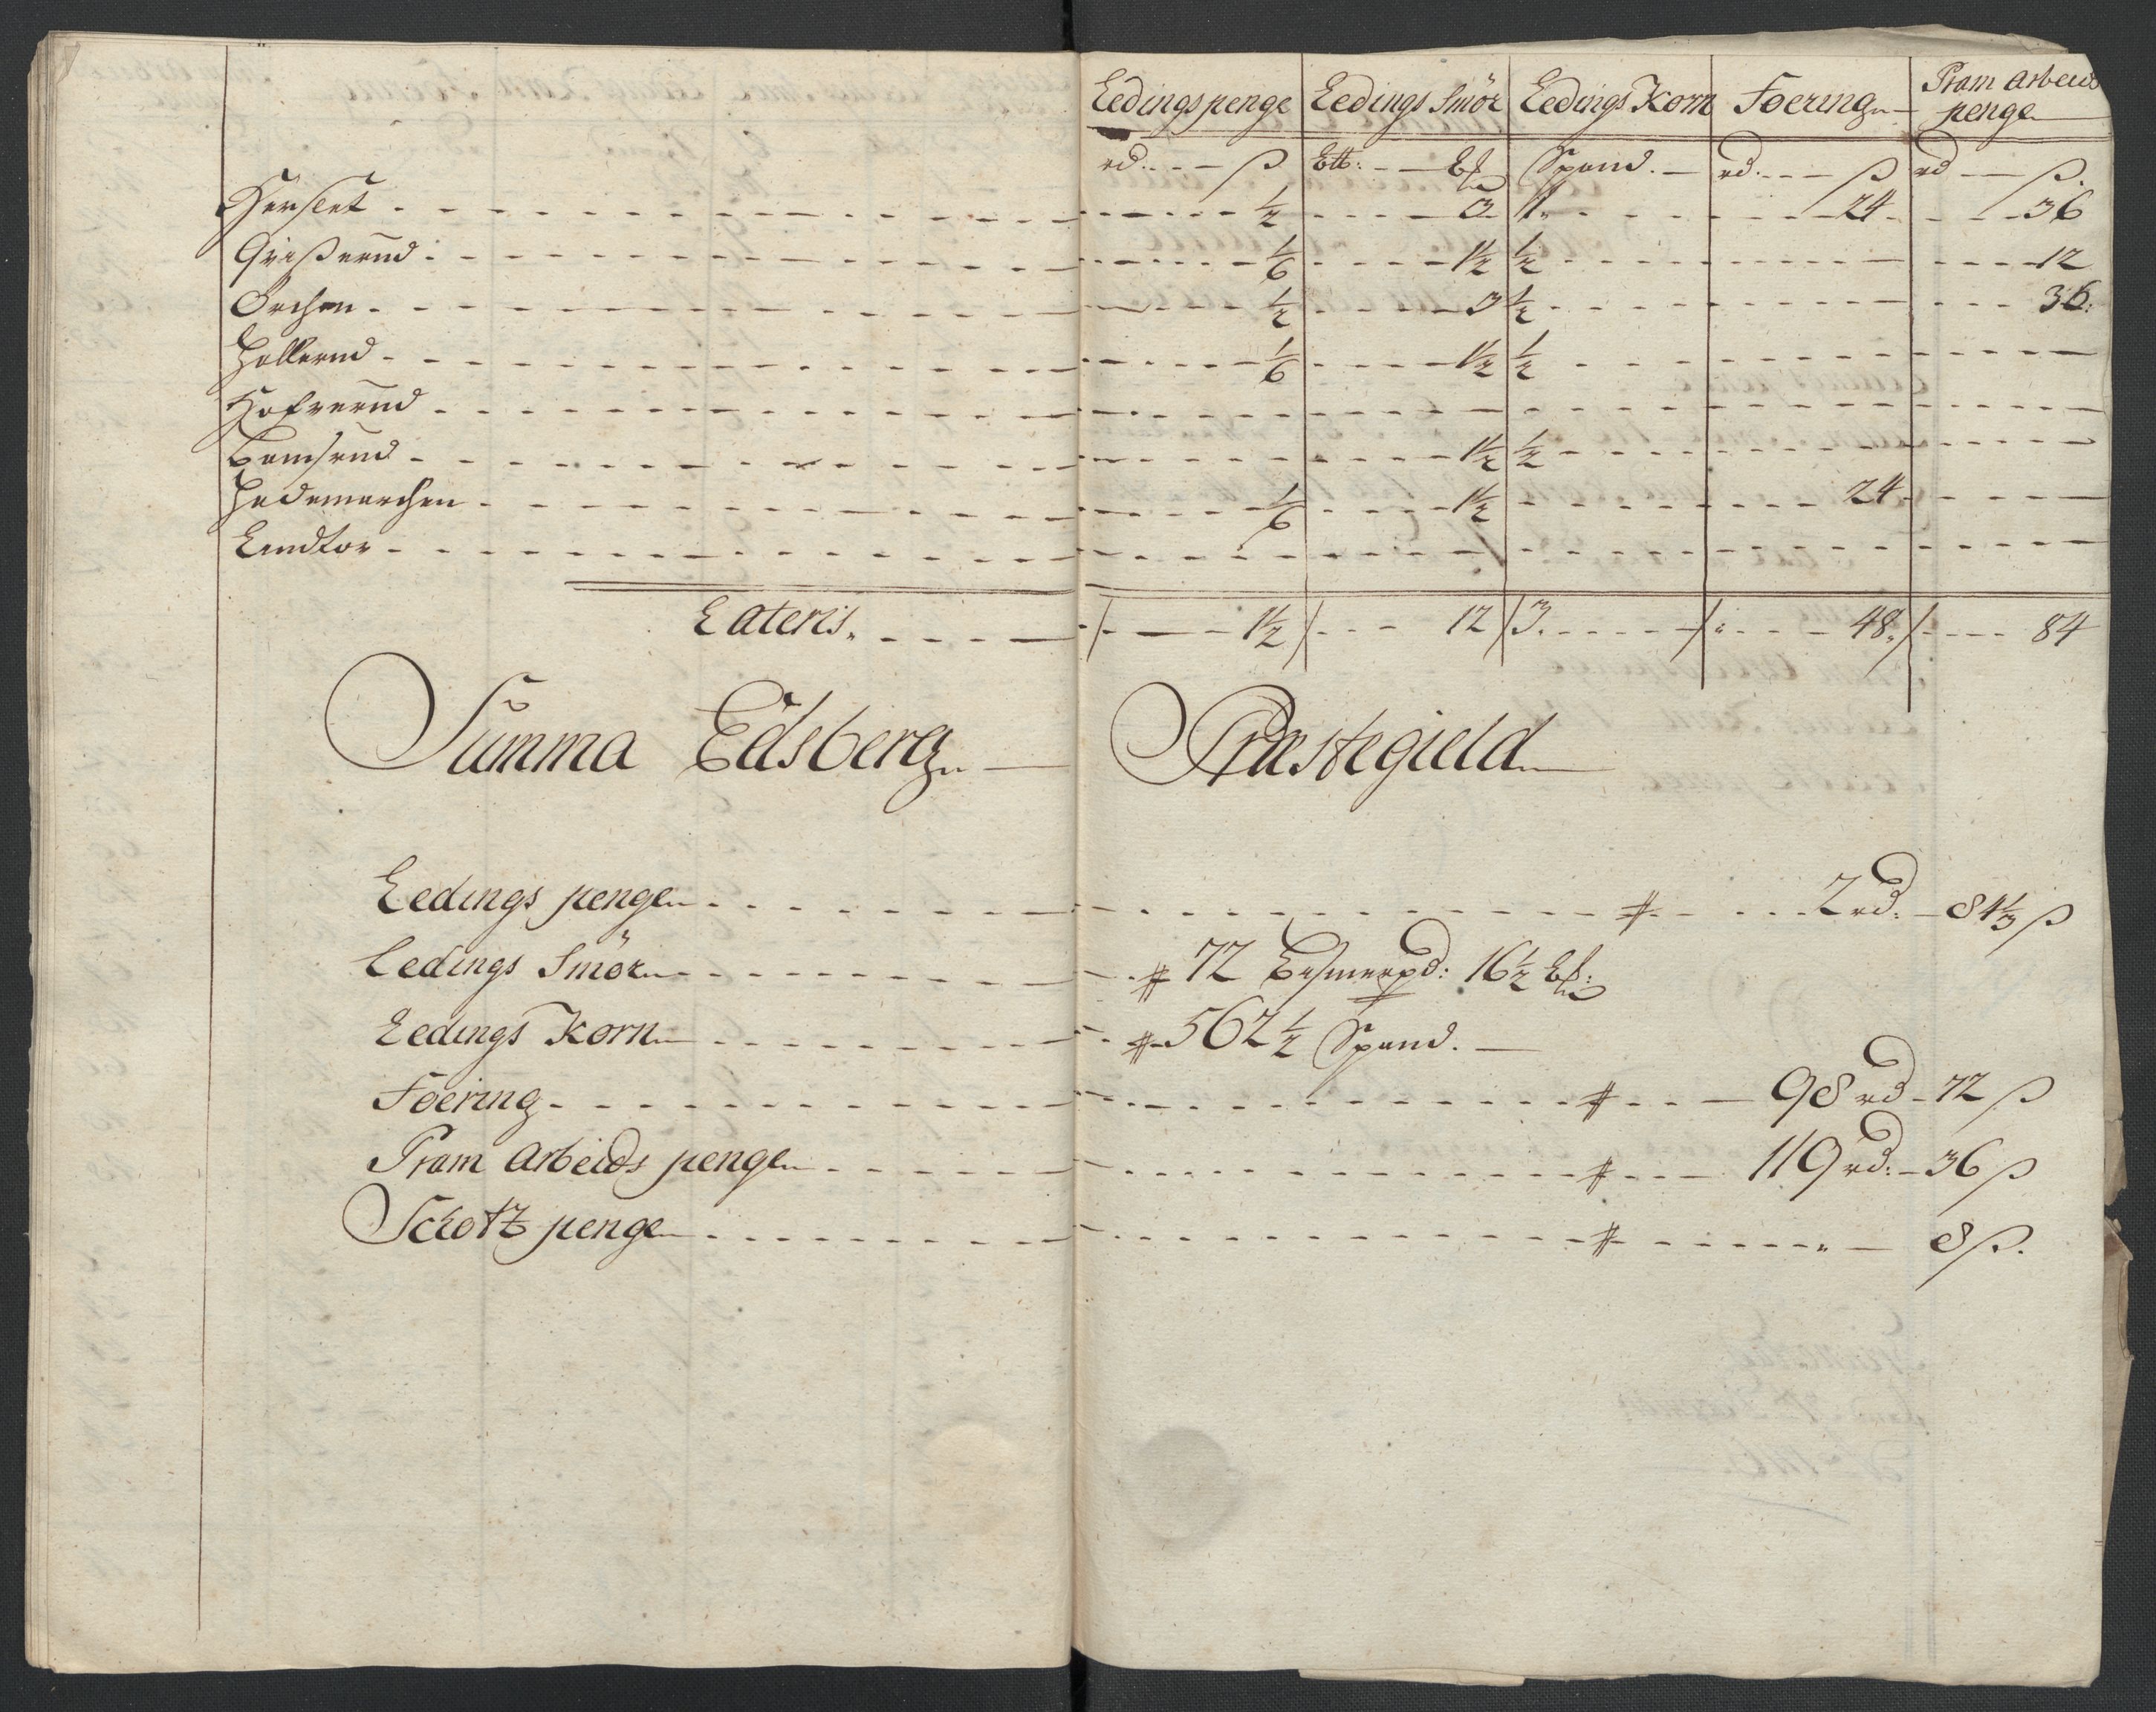 Ledingspenge Ledings Smör Ledings Korn Foering Pram Arbeids penge
rd. ß Spand. rd. ß rd ß.
Herslet 1/2 3 1 24 36
Grißerud 1/6 1 1/2 1/2 12
Orchen 1/2 3 1/2 36
Hallerud 1/6 1 1/2 1/2
Hofverud
Bamsrud 1 1/2 1/2
Hademarchen 1/6 1 1/2 24
Lundtor
Lateris 1 1/2 12 3 48 84
Summa Edsberg Præstegield
Ledings penge 2 rd. 84 1/3 ß
Ledings Smör 72 Bismerpd: 16 1/2
Ledings Korn 562 1/2 Spand.
Foering 98 rd 72 ß
Pram Arbeids penge 119 rd. 36 ß
Schotz penge 8 ß.